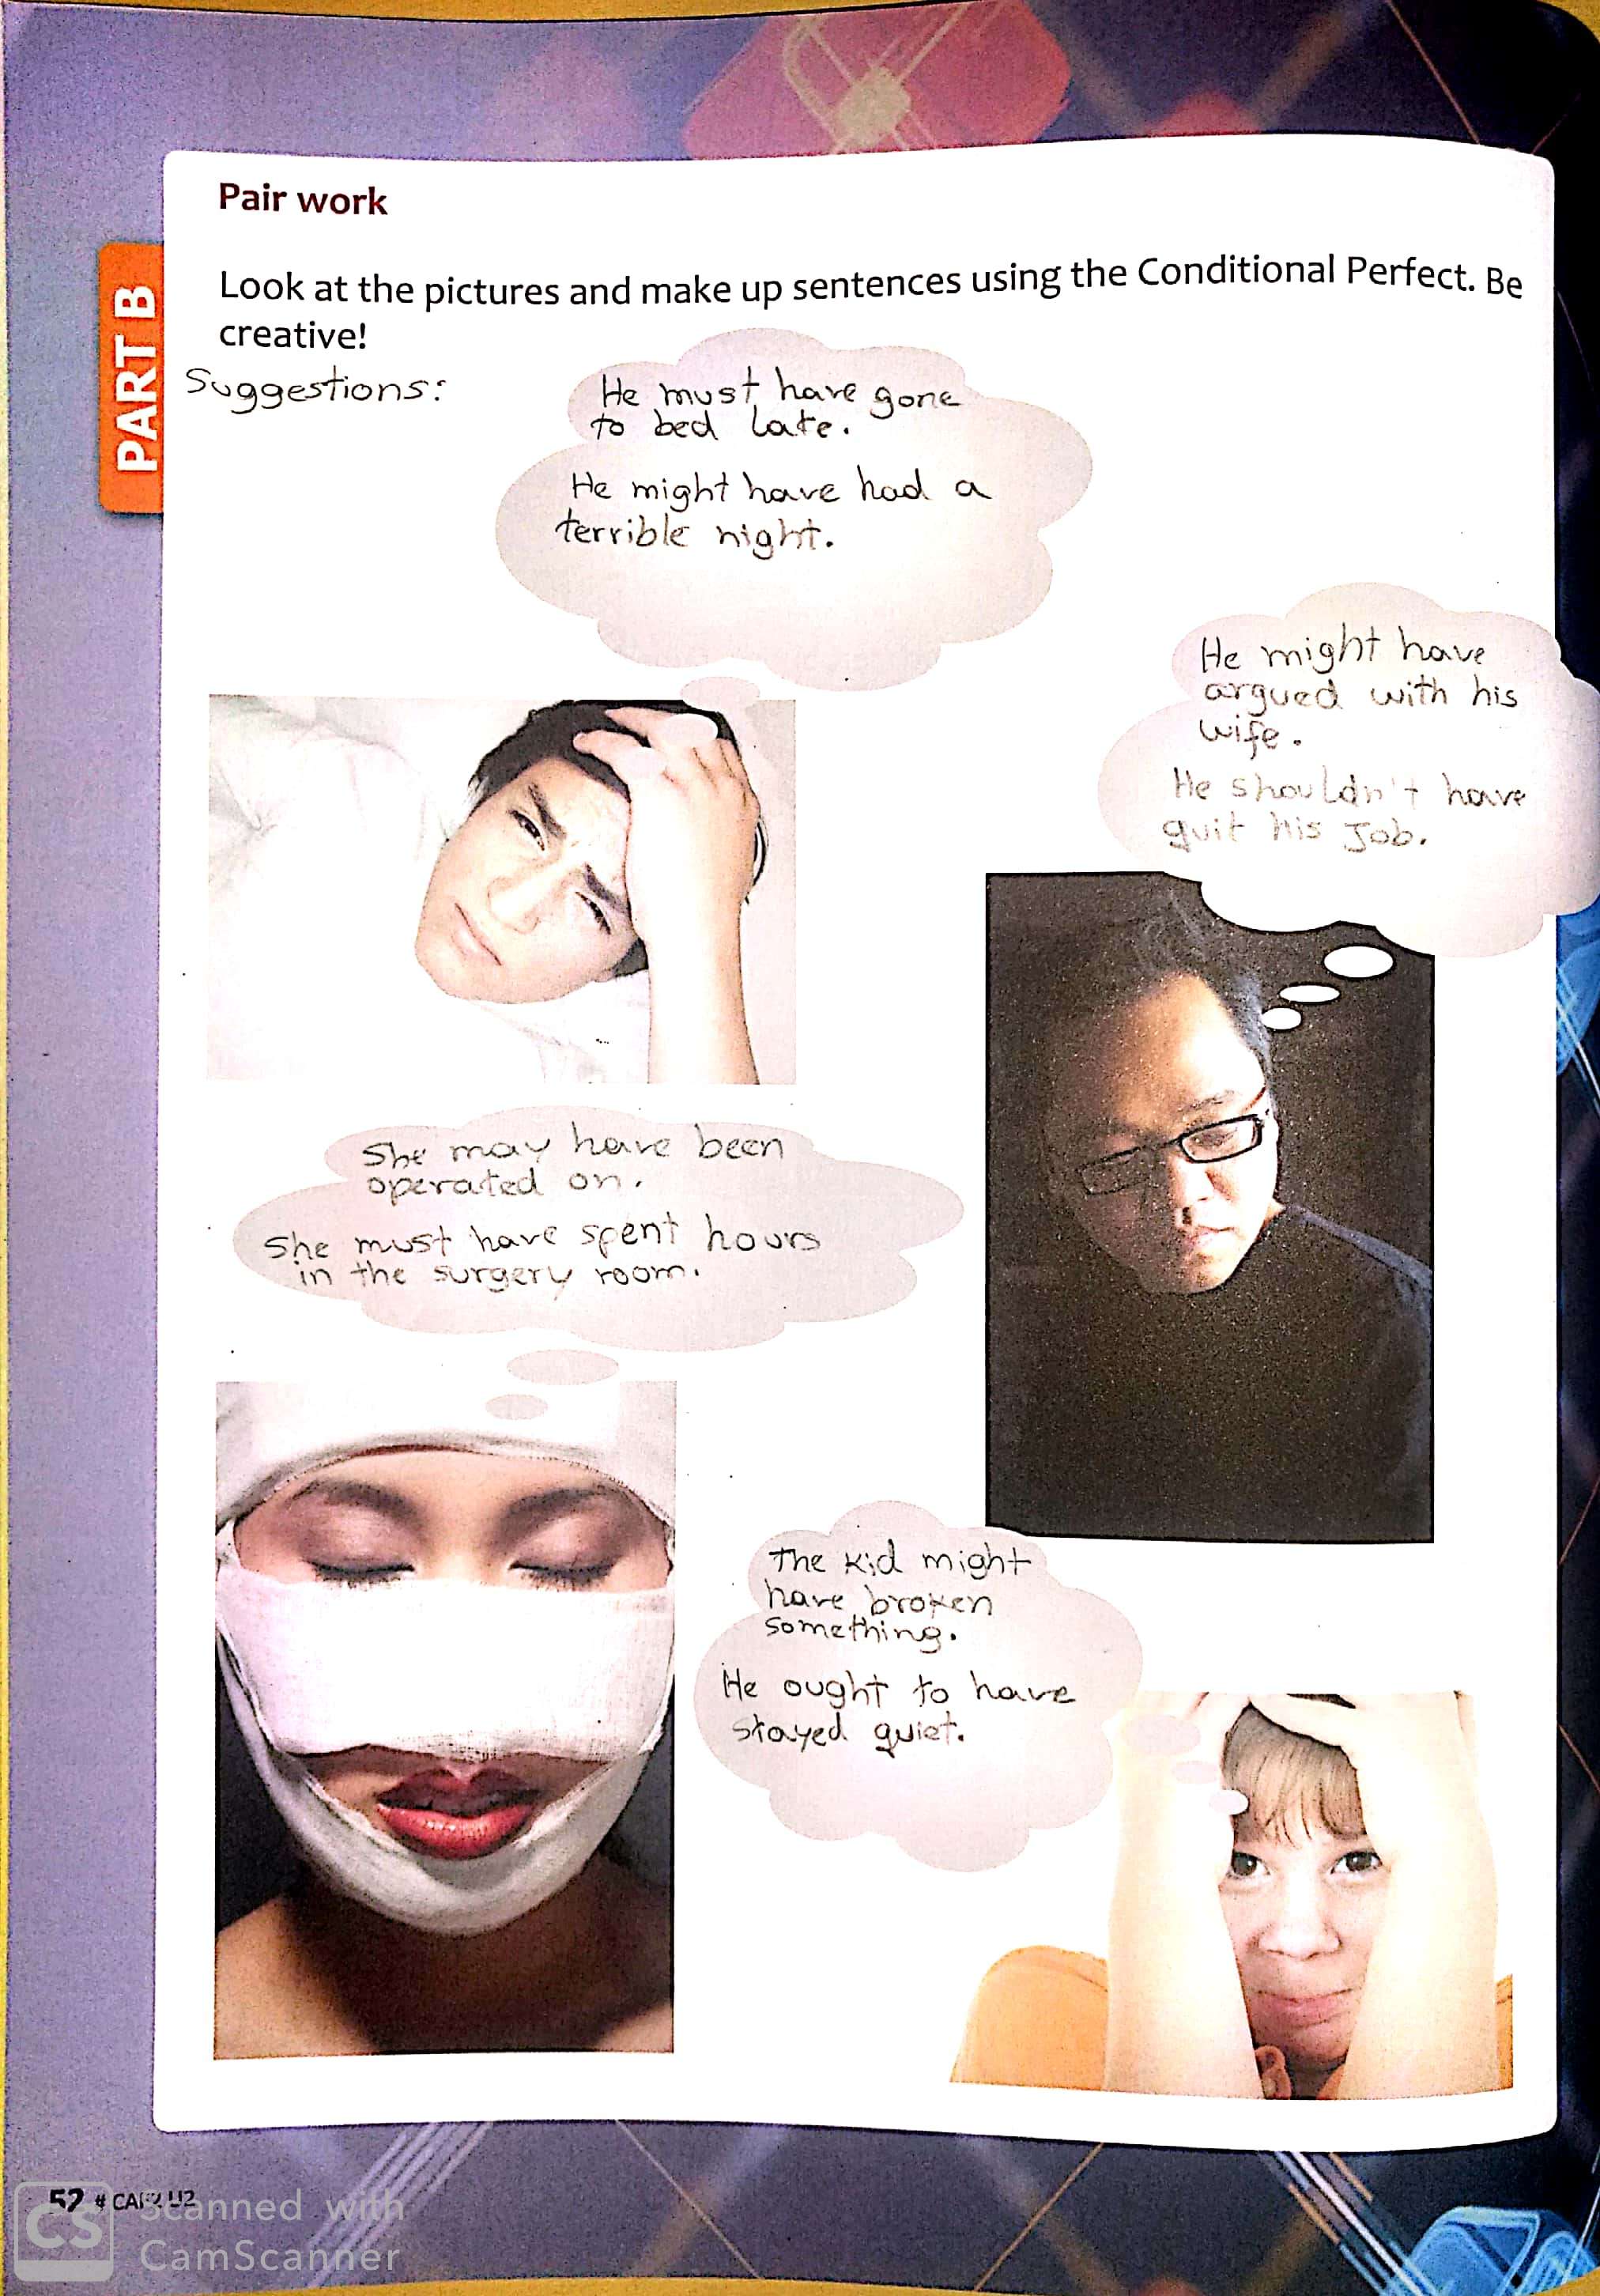 Pair work
PART B
Look at the pictures and make up sentences using the Conditional Perfect. Be
creative!
Suggestions:
He must have gone
to bed late.
He might have had a
terrible night.
He might have
argued with his
wife.
He shouldn't have
quit his Job.
She may have been
operated on.
She must have spent hours
in the surgery room.
The kid might
have broken
something.
He ought to have
stayed quiet.
52 #
CS
Scanned with
CamScanner